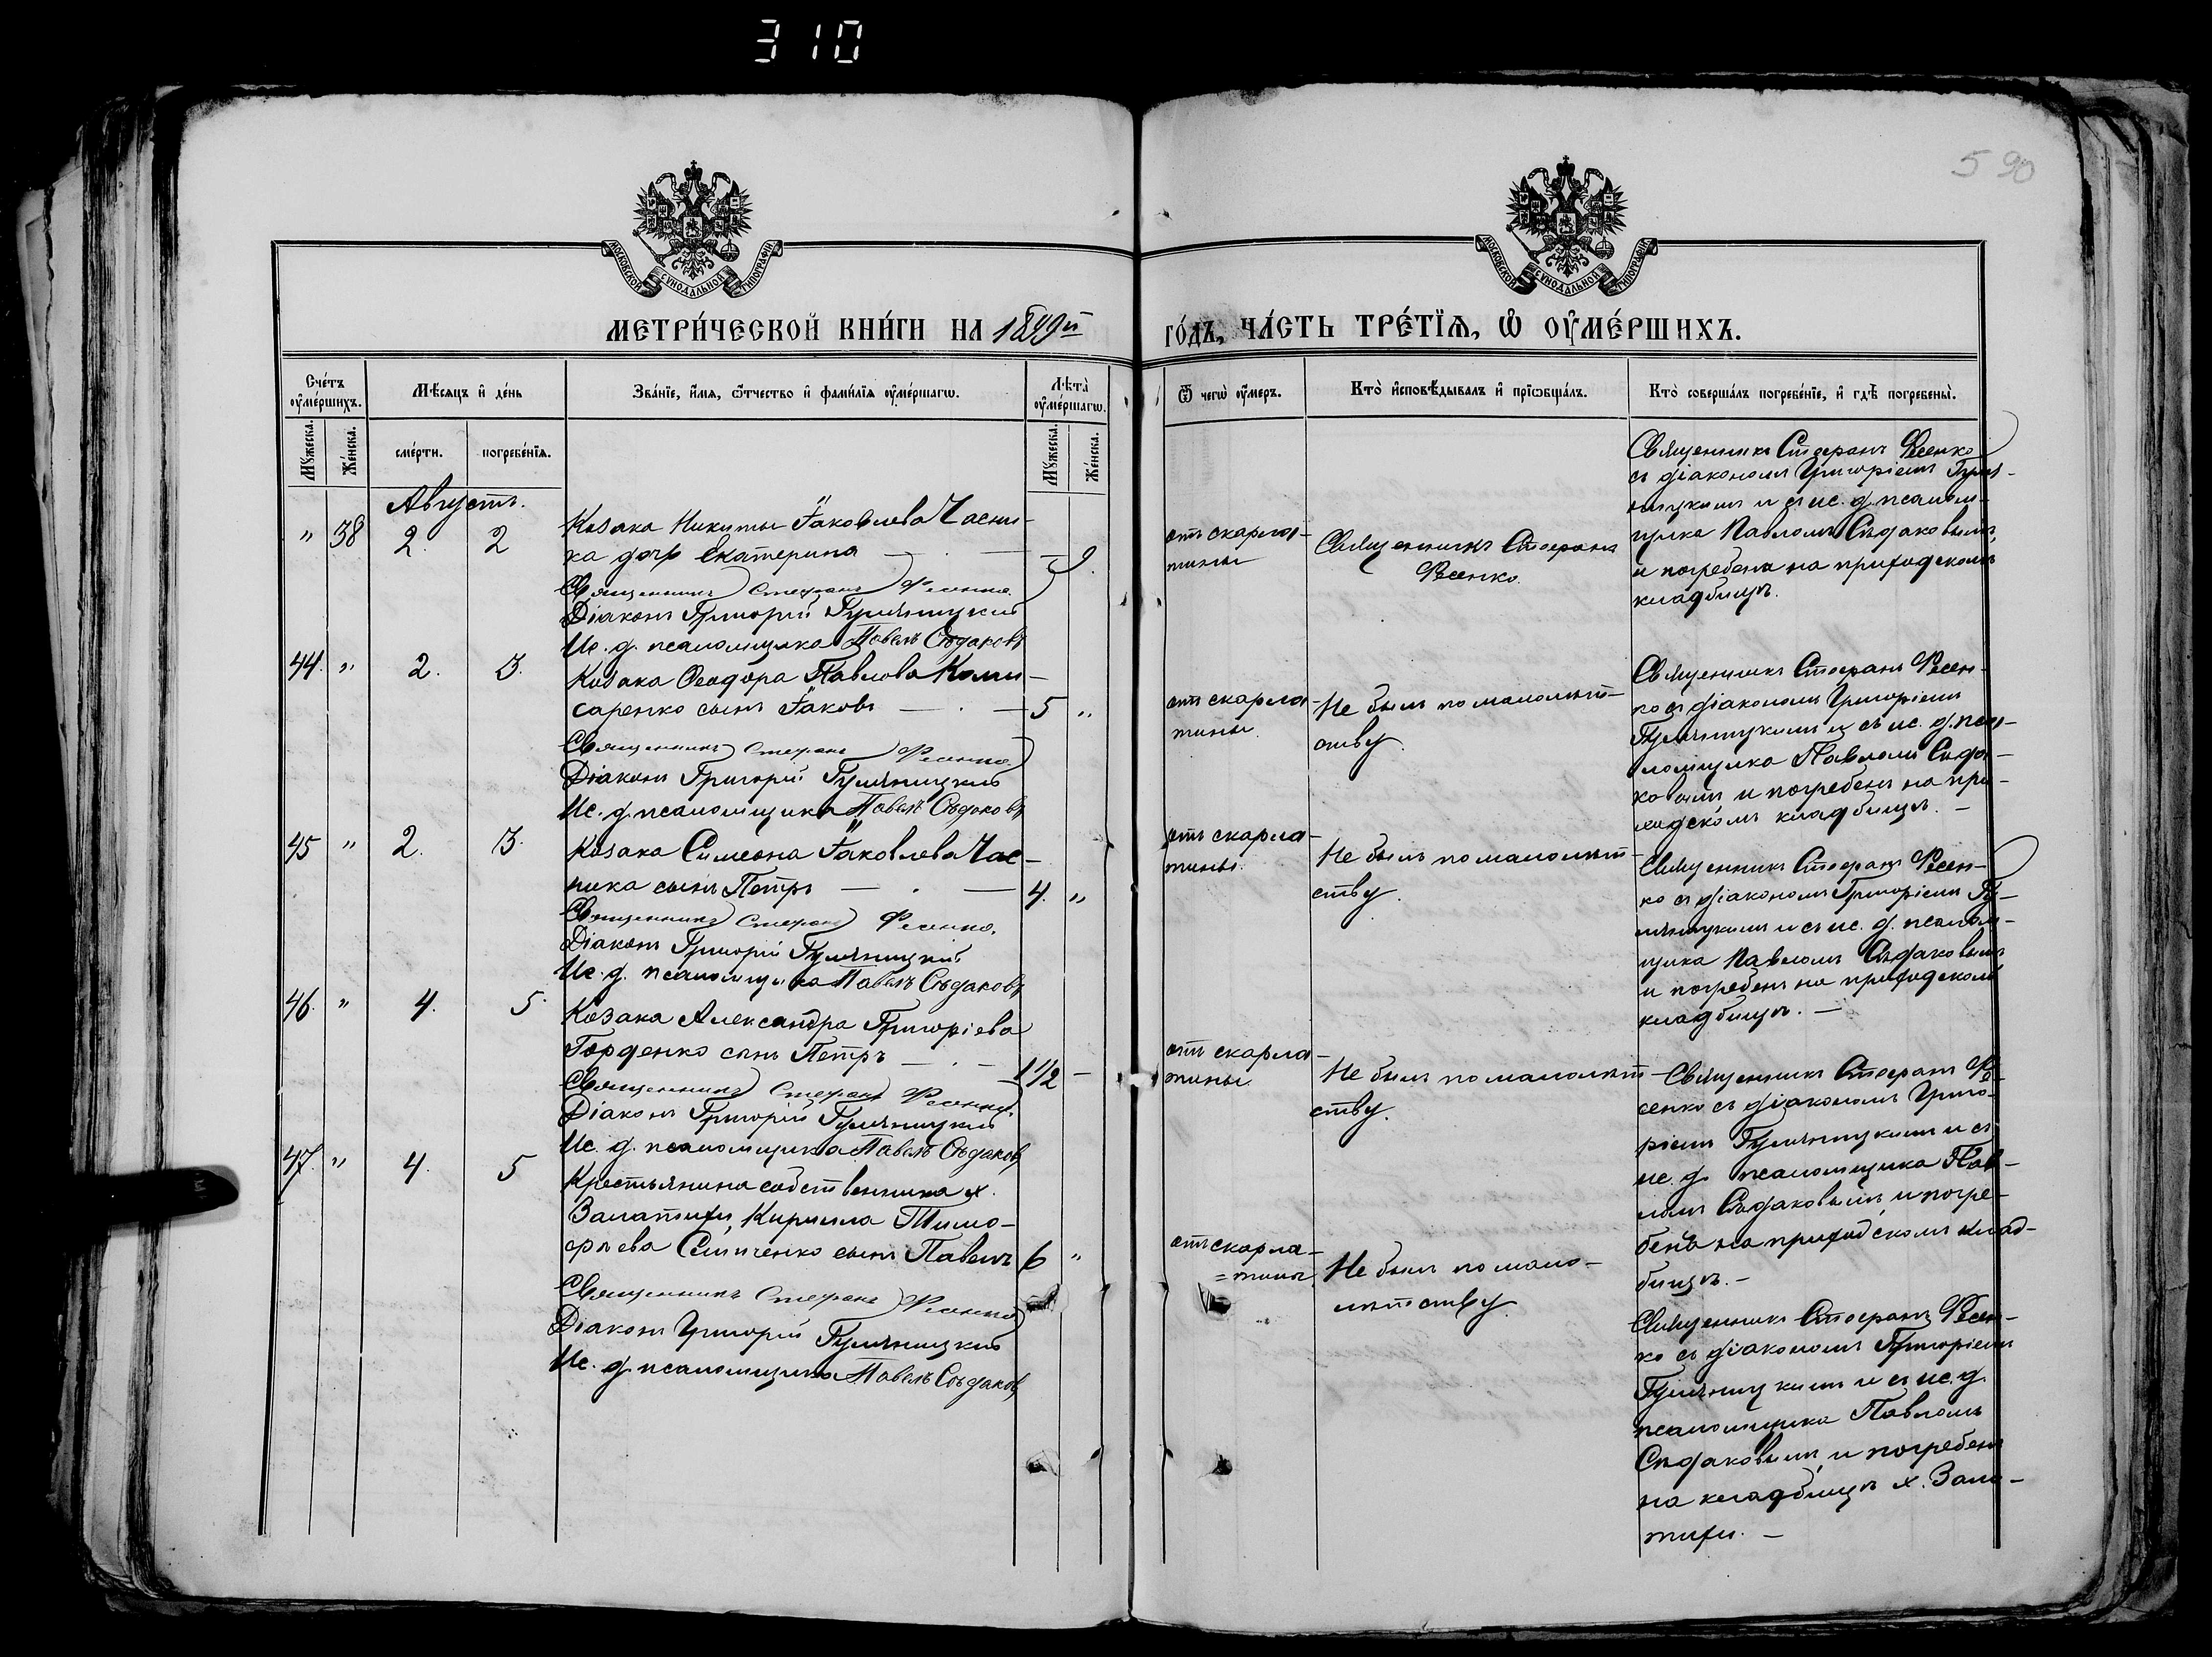 310
590
МОСКОВСКОЙ СѴНОДАЛЬНОЙ ТИПОГРАФІИ
МОСКОВСКОЙ СѴНОДАЛЬНОЙ ТИПОГРАФІИ
МЕТРИ́ЧЕСКОЙ КНИ́ГИ НА 1879й
ГО́ДЪ, ЧА́СТЬ ТРЕ́ТЇѦ, Ѽ ОУМЕ́РШИХЪ.
Сче́тъ оуме́ршихъ.
Мужеска.
Же́нска.
Мѣ́сяцъ и де́нь
сме́рти.
погребе́нїѧ.
Зва́нїе, и́мѧ, ѻ́тчество и фами́лїѧ оуме́ршагѡ.
Лѣта̀ оуме́ршагѡ.
Мужеска.
Же́нска.
Ѿ чегѡ̀ оу́меръ.
Кто̀ исповѣ́дывалъ и прїѡбща́лъ.
Кто̀ соверша́лъ погребе́нїе, и гдѣ̀ погребены̀.
Августъ.
" 38 2. 2
Козака Никиты Іаковлева Часни-
ка дочь Екатерина — . — — 9.
Священникъ Стефанъ Фесенко.
Діаконъ Григорій Гуляницкій
Ис. д. псаломщика Павелъ Сѣдаковъ
отъ скарла-
тины
Священникъ Стефанъ
Фесенко.
Священникъ Стефанъ Фесенко
съ діакономъ Григоріемъ Гуля-
ницкимъ и съ ис. д. псалом-
щика Павломъ Сѣдаковымъ,
и погребена на приходскомъ
кладбищѣ.
44. " 2. 3.
Козака Ѳеодора Павлова Коми-
саренко сынъ Іаковъ — . — 5 "
Священникъ Стефанъ Фесенко.
Діаконъ Григорій Гуляницкій
Ис. д. псаломщика Павелъ Сѣдаковъ
отъ скарла-
тины.
Не былъ по малолѣт-
ству.
Священникъ Стефанъ Фесен-
ко съ діакономъ Григоріемъ
Гуляницкимъ и съ ис. д. пса-
ломщика Павломъ Сѣда-
ковымъ и погребенъ на при-
ходскомъ кладбищѣ. —
45 " 2. 3.
Козака Симеона Іаковлева Час-
ника сынъ Петръ — . — 4. "
Священникъ Стефанъ Фесенко.
Діаконъ Григорій Гуляницкій
Ис. д. псаломщика Павелъ Сѣдаковъ
отъ скарла-
тины.
Не былъ по малолѣт-
ству.
Священникъ Стефанъ Фесен-
ко съ діакономъ Григоріемъ Гу-
ляницкимъ и съ ис. д. псалом-
щика Павломъ Сѣдаковымъ
и погребенъ на приходскомъ
кладбищѣ. —
46. " 4. 5.
Козака Александра Григоріева
Горденко сынъ Петръ — . — 1 1/2 —
Священникъ Стефанъ Фесенко.
Діаконъ Григорій Гуляницкій
Ис. д. псаломщика Павелъ Сѣдаковъ
отъ скарла-
тины
Не былъ по малолѣт-
ству.
Священникъ Стефанъ Фе-
сенко съ діакономъ Григо-
ріемъ Гуляницкимъ и съ
ис. д. псаломщика Пав-
ломъ Сѣдаковымъ, и погре-
бенъ на приходскомъ клад-
бищѣ. —
47. " 4. 5
Крестьянина собственника х.
Залатихи, Кирилла Тимо-
фѣева сынъ Павелъ 6 "
Священникъ Стефанъ Фесенко
Діаконъ Григорій Гуляницкій
Ис. д. псаломщика Павелъ Сѣдаковъ
отъ скарла-
=тины.
Не былъ по мало-
лѣтству.
Священникъ Стефанъ Фесен-
ко съ діакономъ Григоріемъ
Гуляницкимъ и съ ис. д.
псаломщика Павломъ
Сѣдаковымъ, и погребенъ
на кладбищѣ х. Зала-
тихи. —